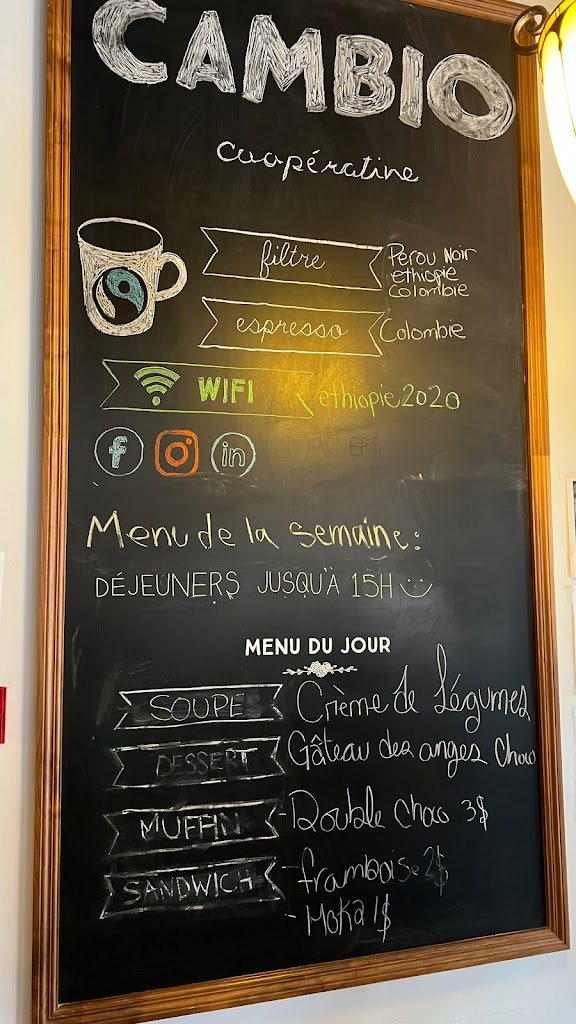 CAMBIO
Coopérative
filtre
Pérou Noir
ethiopie
Colombie
espresso Colombie
WIFI ethiopie2020
f in
Menu de la semaine:
DÉJEUNERS JUSQU'À 15H
MENU DU JOUR
SOUPE Crème de légumes
DESSERT Gâteau des anges choco
MUFFIN - Double choco 3$
SANDWICH - framboise 2$
- Moka 1$